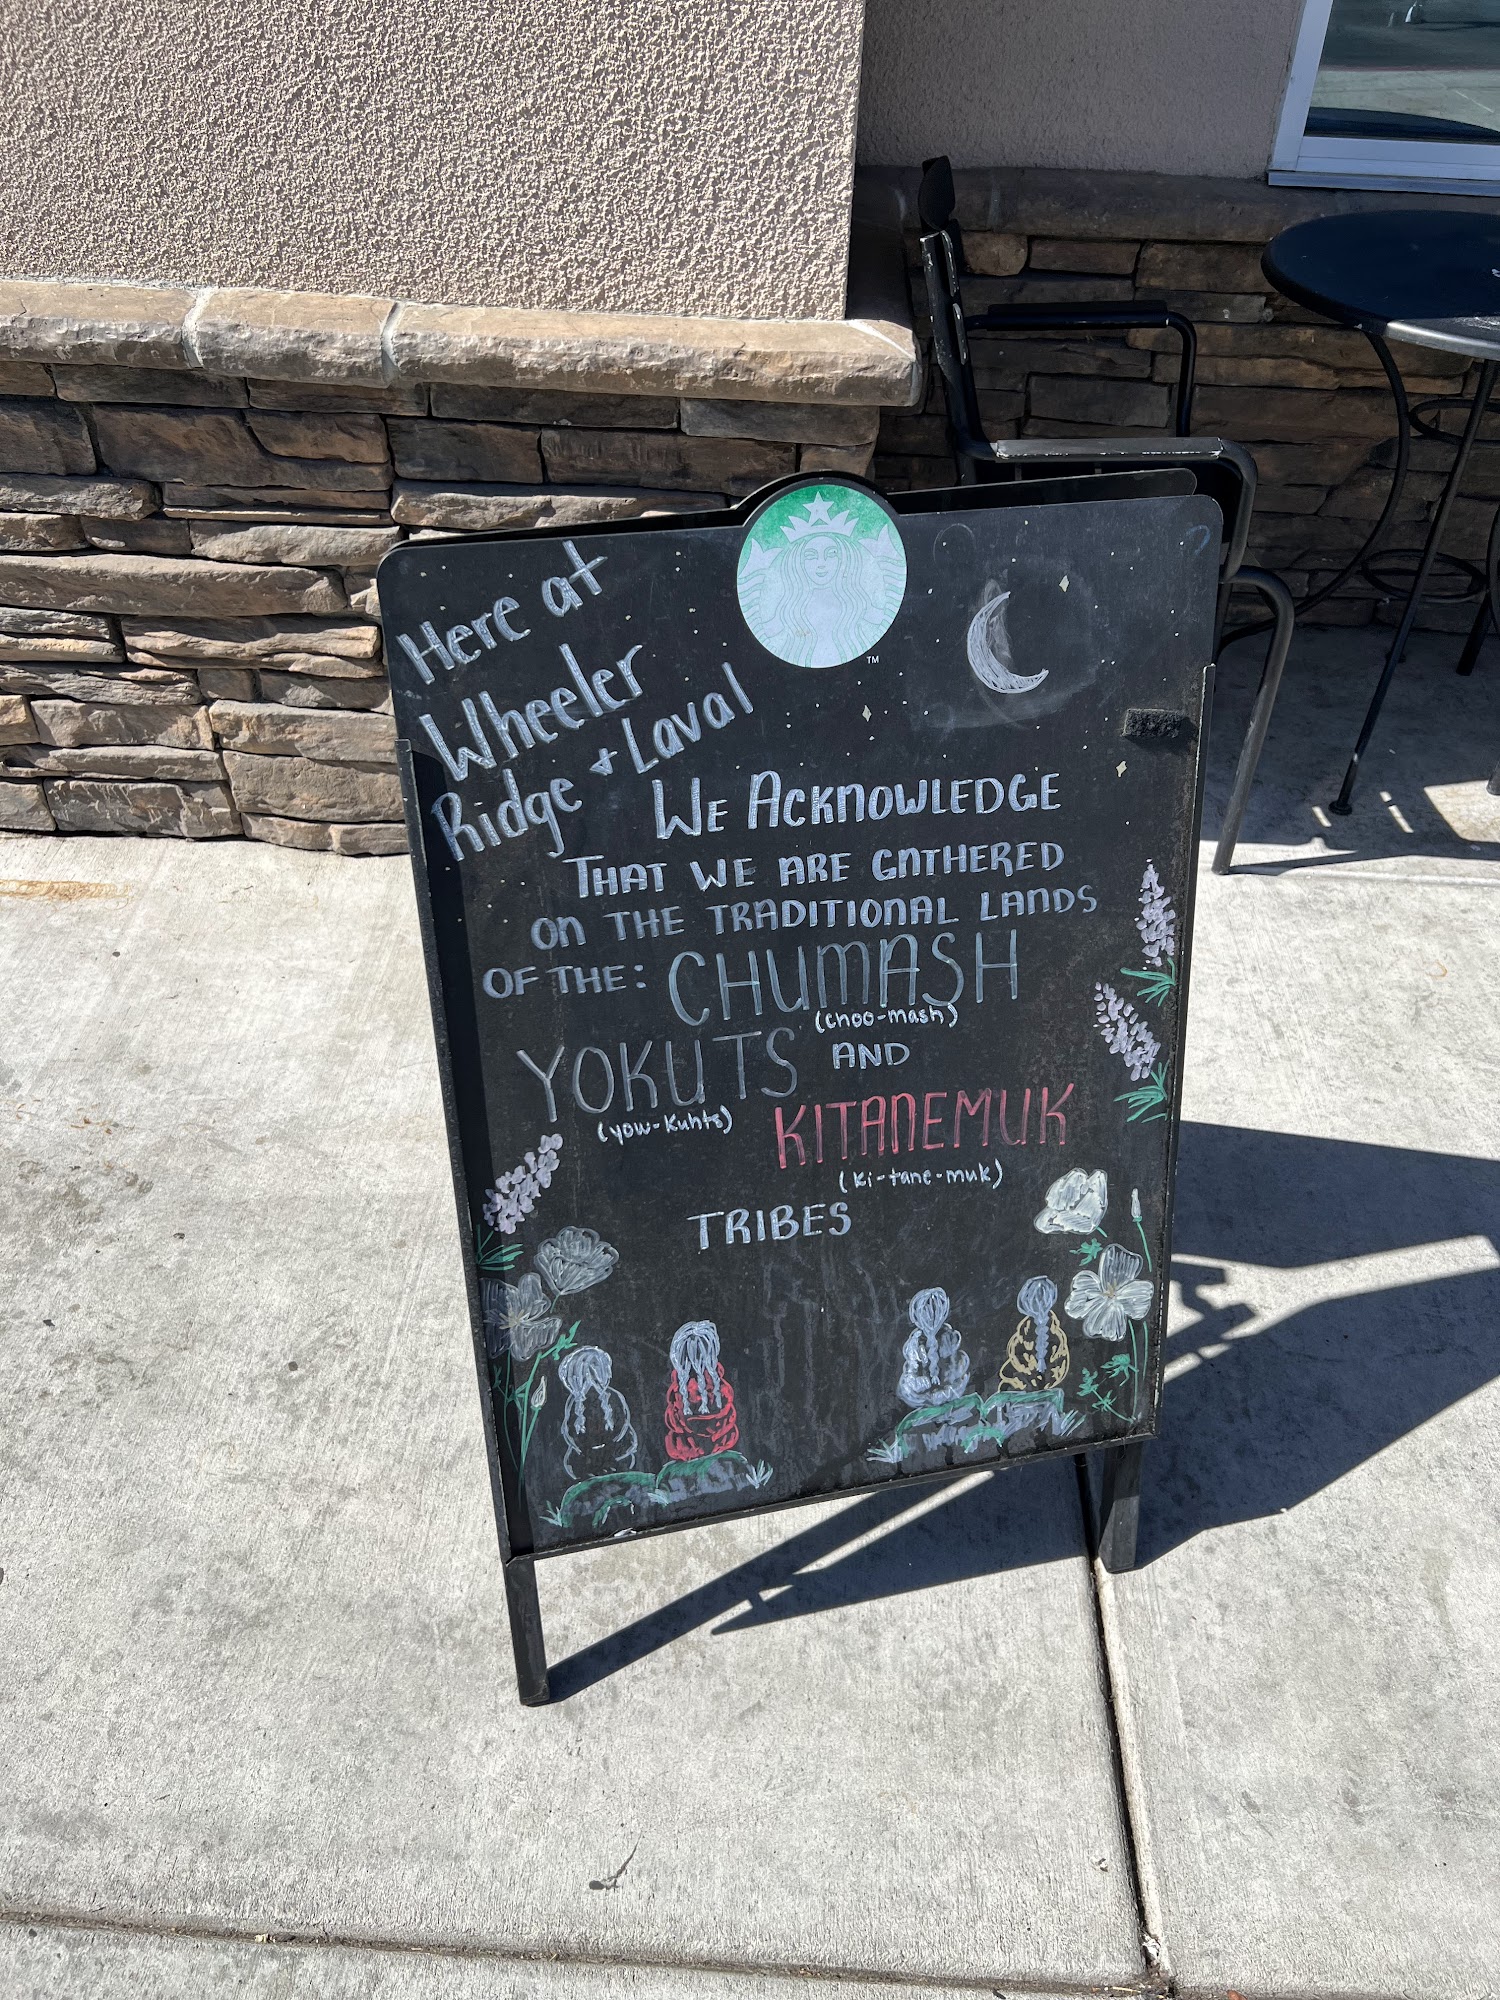 Here at
Wheeler
Ridge + Laval
We Acknowledge
That we are gathered
on the traditional lands
of the: CHUMASH
(choo-mash)
YOKUTS AND
(yow-Kuhts)
KITANEMUK
(Ki-tane-muk)
TRIBES
TM